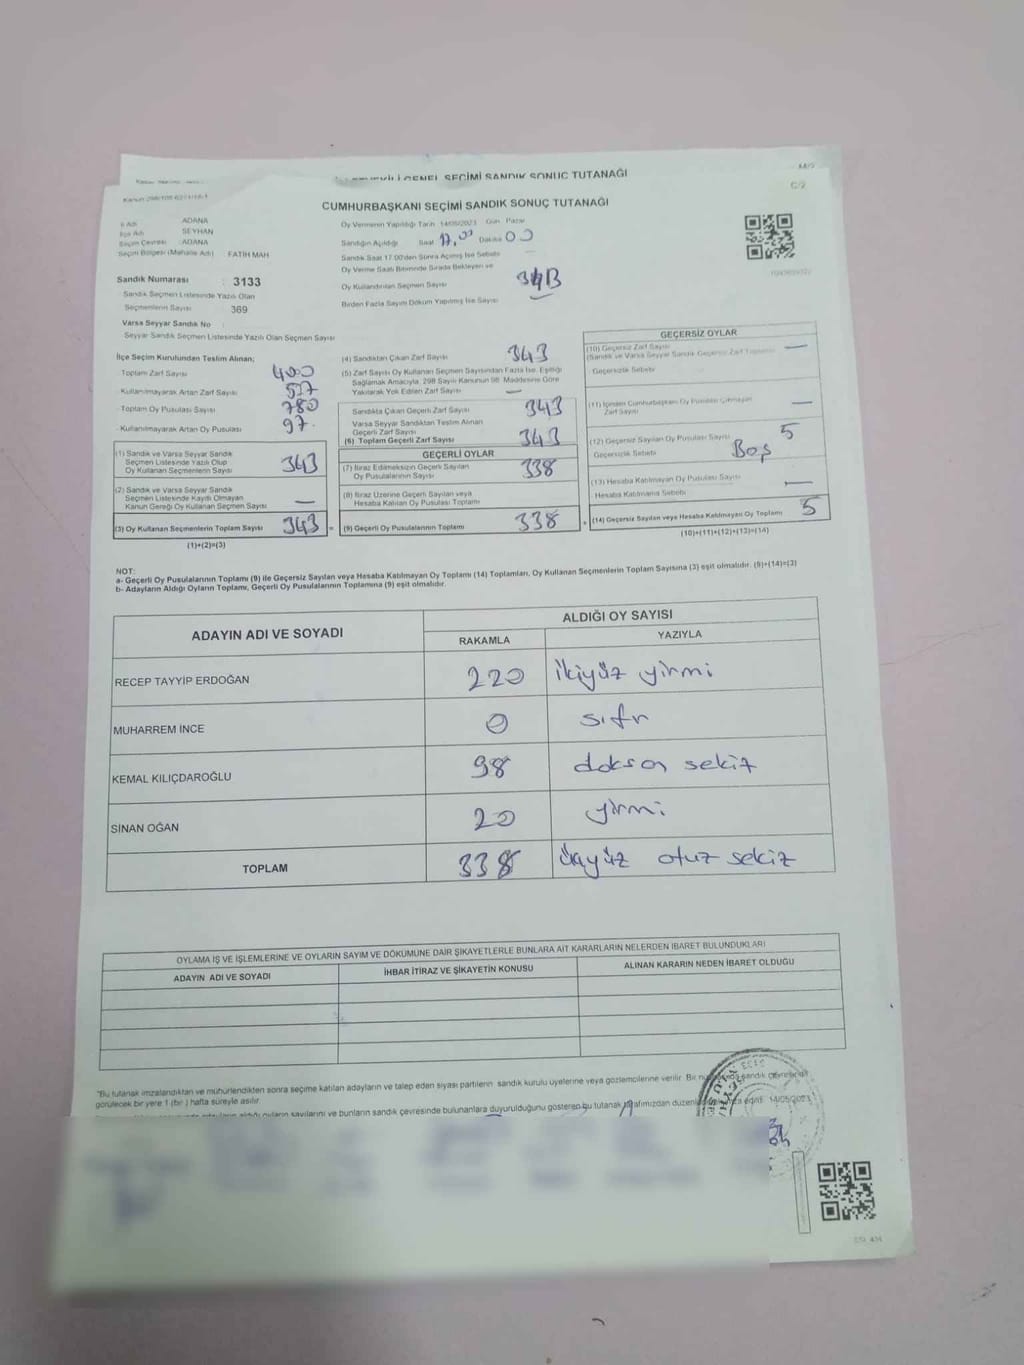 GENEL SEÇİMİ SANDIK SONUÇ TUTANAĞI
C/2
CUMHURBAŞKANI SEÇİMİ SANDIK SONUÇ TUTANAĞI
İl Adı ADANA
İlçe Adı SEYHAN
Seçim Çevresi : ADANA
Seçim Bölgesi (Mahalle Adı) FATİH MAH
Sandık Numarası : 3133
Sandık Seçmen Listesinde Yazılı Olan
Seçmenlerin Sayısı 369
Varsa Seyyar Sandık No
Seyyar Sandık Seçmen Listesinde Yazılı Olan Seçmen Sayısı
Oy Vermenin Yapıldığı Tarih 14/05/2023 Gün Pazar
Sandığın Açıldığı Saat 17.00 Dakika 00
Sandık Saat 17.00'den Sonra Açılmış İse Sebebi
Oy Verme Saati Bitiminde Sırada Bekleyen ve
Oy Kullandırılan Seçmen Sayısı
Birden Fazla Sayım Döküm Yapılmış İse Sayısı
İlçe Seçim Kurulundan Teslim Alınan;
Toplam Zarf Sayısı 400
- Kullanılmayarak Artan Zarf Sayısı 57
- Toplam Oy Pusulası Sayısı
- Kullanılmayarak Artan Oy Pusulası 97
(1) Sandık ve Varsa Seyyar Sandık
Seçmen Listesinde Yazılı Olup
Oy Kullanan Seçmenlerin Sayısı 343
(2) Sandık ve Varsa Seyyar Sandık
Seçmen Listesinde Kayıtlı Olmayan
Kanun Gereği Oy Kullanan Seçmen Sayısı —
(3) Oy Kullanan Seçmenlerin Toplam Sayısı 343 =
(1)+(2)=(3)
(4) Sandıktan Çıkan Zarf Sayısı 343
(5) Zarf Sayısı Oy Kullanan Seçmen Sayısından Fazla İse, Eşitliği
Sağlamak Amacıyla, 298 Sayılı Kanunun 98. Maddesine Göre
Yakılarak Yok Edilen Zarf Sayısı —
Sandıkta Çıkan Geçerli Zarf Sayısı 343
Varsa Seyyar Sandıktan Teslim Alınan
Geçerli Zarf Sayısı
(6) Toplam Geçerli Zarf Sayısı 343
GEÇERLİ OYLAR
(7) İtiraz Edilmeksizin Geçerli Sayılan
Oy Pusulalarının Sayısı 338
(8) İtiraz Üzerine Geçerli Sayılan veya
Hesaba Katılan Oy Pusulası Toplamı
(9) Geçerli Oy Pusulalarının Toplamı 338 +
GEÇERSİZ OYLAR
(10) Geçersiz Zarf Sayısı —
(Sandık ve Varsa Seyyar Sandık Geçersiz Zarf Toplamı)
Geçersizlik Sebebi
(11) İçinden Cumhurbaşkanı Oy Pusulası Çıkmayan
Zarf Sayısı —
(12) Geçersiz Sayılan Oy Pusulası Sayısı 5
Geçersizlik Sebebi Boş
(13) Hesaba Katılmayan Oy Pusulası Sayısı —
Hesaba Katılmama Sebebi
(14) Geçersiz Sayılan veya Hesaba Katılmayan Oy Toplamı 5
(10)+(11)+(12)+(13)=(14)
NOT:
a- Geçerli Oy Pusulalarının Toplamı (9) ile Geçersiz Sayılan veya Hesaba Katılmayan Oy Toplamı (14) Toplamları, Oy Kullanan Seçmenlerin Toplam Sayısına (3) eşit olmalıdır. (9)+(14)=(3)
b- Adayların Aldığı Oyların Toplamı, Geçerli Oy Pusulalarının Toplamına (9) eşit olmalıdır.
ADAYIN ADI VE SOYADI
ALDIĞI OY SAYISI
RAKAMLA YAZIYLA
RECEP TAYYİP ERDOĞAN 220 ikiyüz yirmi
MUHARREM İNCE 0 sıfır
KEMAL KILIÇDAROĞLU 98 doksan sekiz
SİNAN OĞAN 20 yirmi
TOPLAM 338 üçyüz otuz sekiz
OYLAMA İŞ VE İŞLEMLERİNE VE OYLARIN SAYIM VE DÖKÜMÜNE DAİR ŞİKAYETLERLE BUNLARA AİT KARARLARIN NELERDEN İBARET BULUNDUKLARI
ADAYIN ADI VE SOYADI İHBAR İTİRAZ VE ŞİKAYETİN KONUSU ALINAN KARARIN NEDEN İBARET OLDUĞU
*Bu tutanak imzalandıktan ve mühürlendikten sonra seçime katılan adayların ve talep eden siyasi partilerin sandık kurulu üyelerine veya gözlemcilerine verilir. Bir sandık çevresinde
görülecek bir yere 1 (bir) hafta süreyle asılır.
adayların aldığı oyların sayılarını ve bunların sandık çevresinde bulunanlara duyurulduğunu gösteren bu tutanak tarafımızdan 14/05/2023